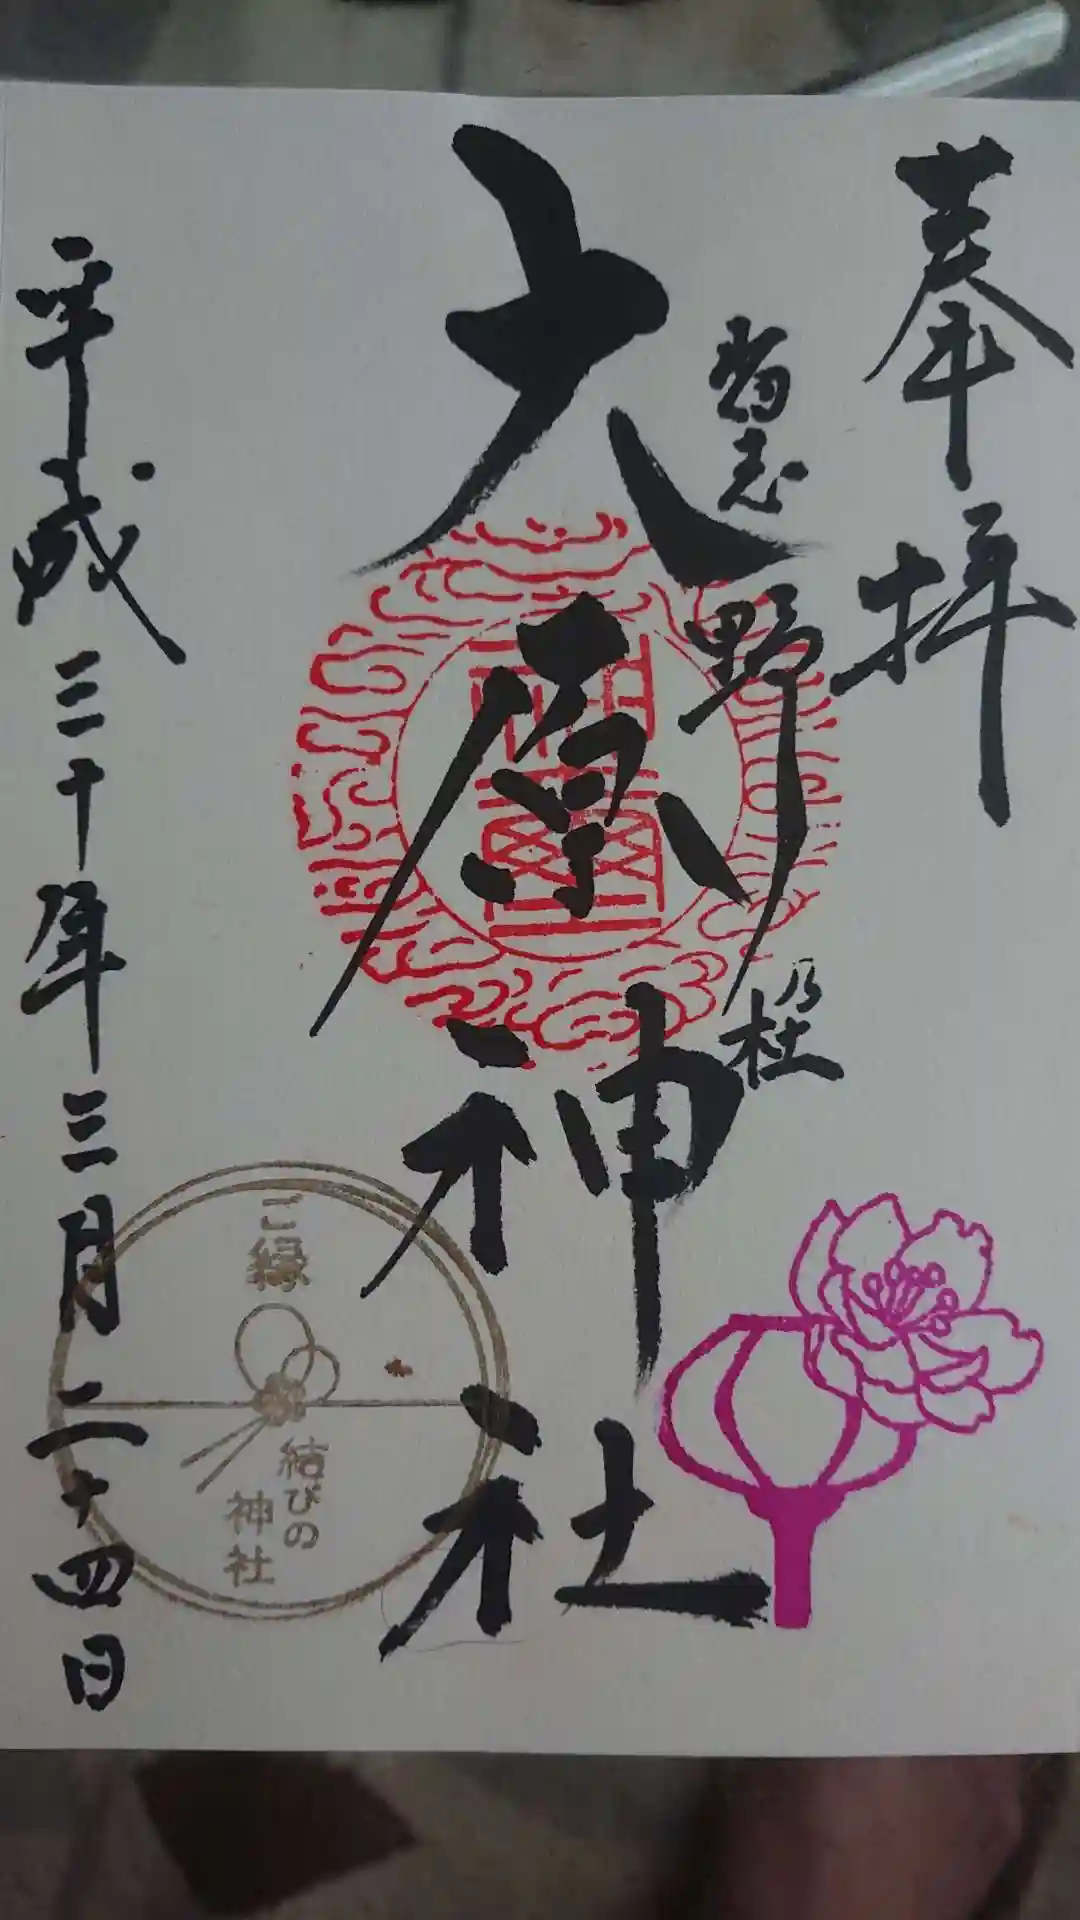 奉拝
習志野乃杜
大原神社
平成三十年三月二十四日
ご縁
結びの
神社